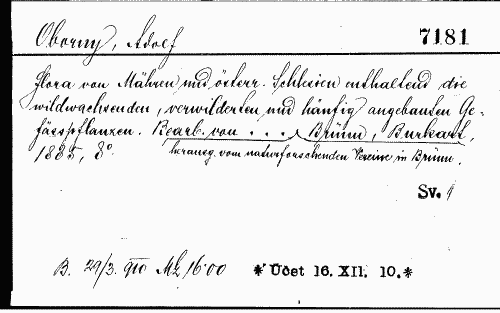 Oborny, Adolf
7181
Flora von Mähren und österr. Schlesien enthaltend die
wildwachsenden, verwilderten und häufig angebauten Ge-
fässpflanzen. Bearb. von . . . , Brünn, Burkart,
1885, 8°.
herausg. vom naturforschenden Vereine in Brünn.
Sv.
B. 29/3. 910 Mk 16·00
*Účet 16. XII. 10.*